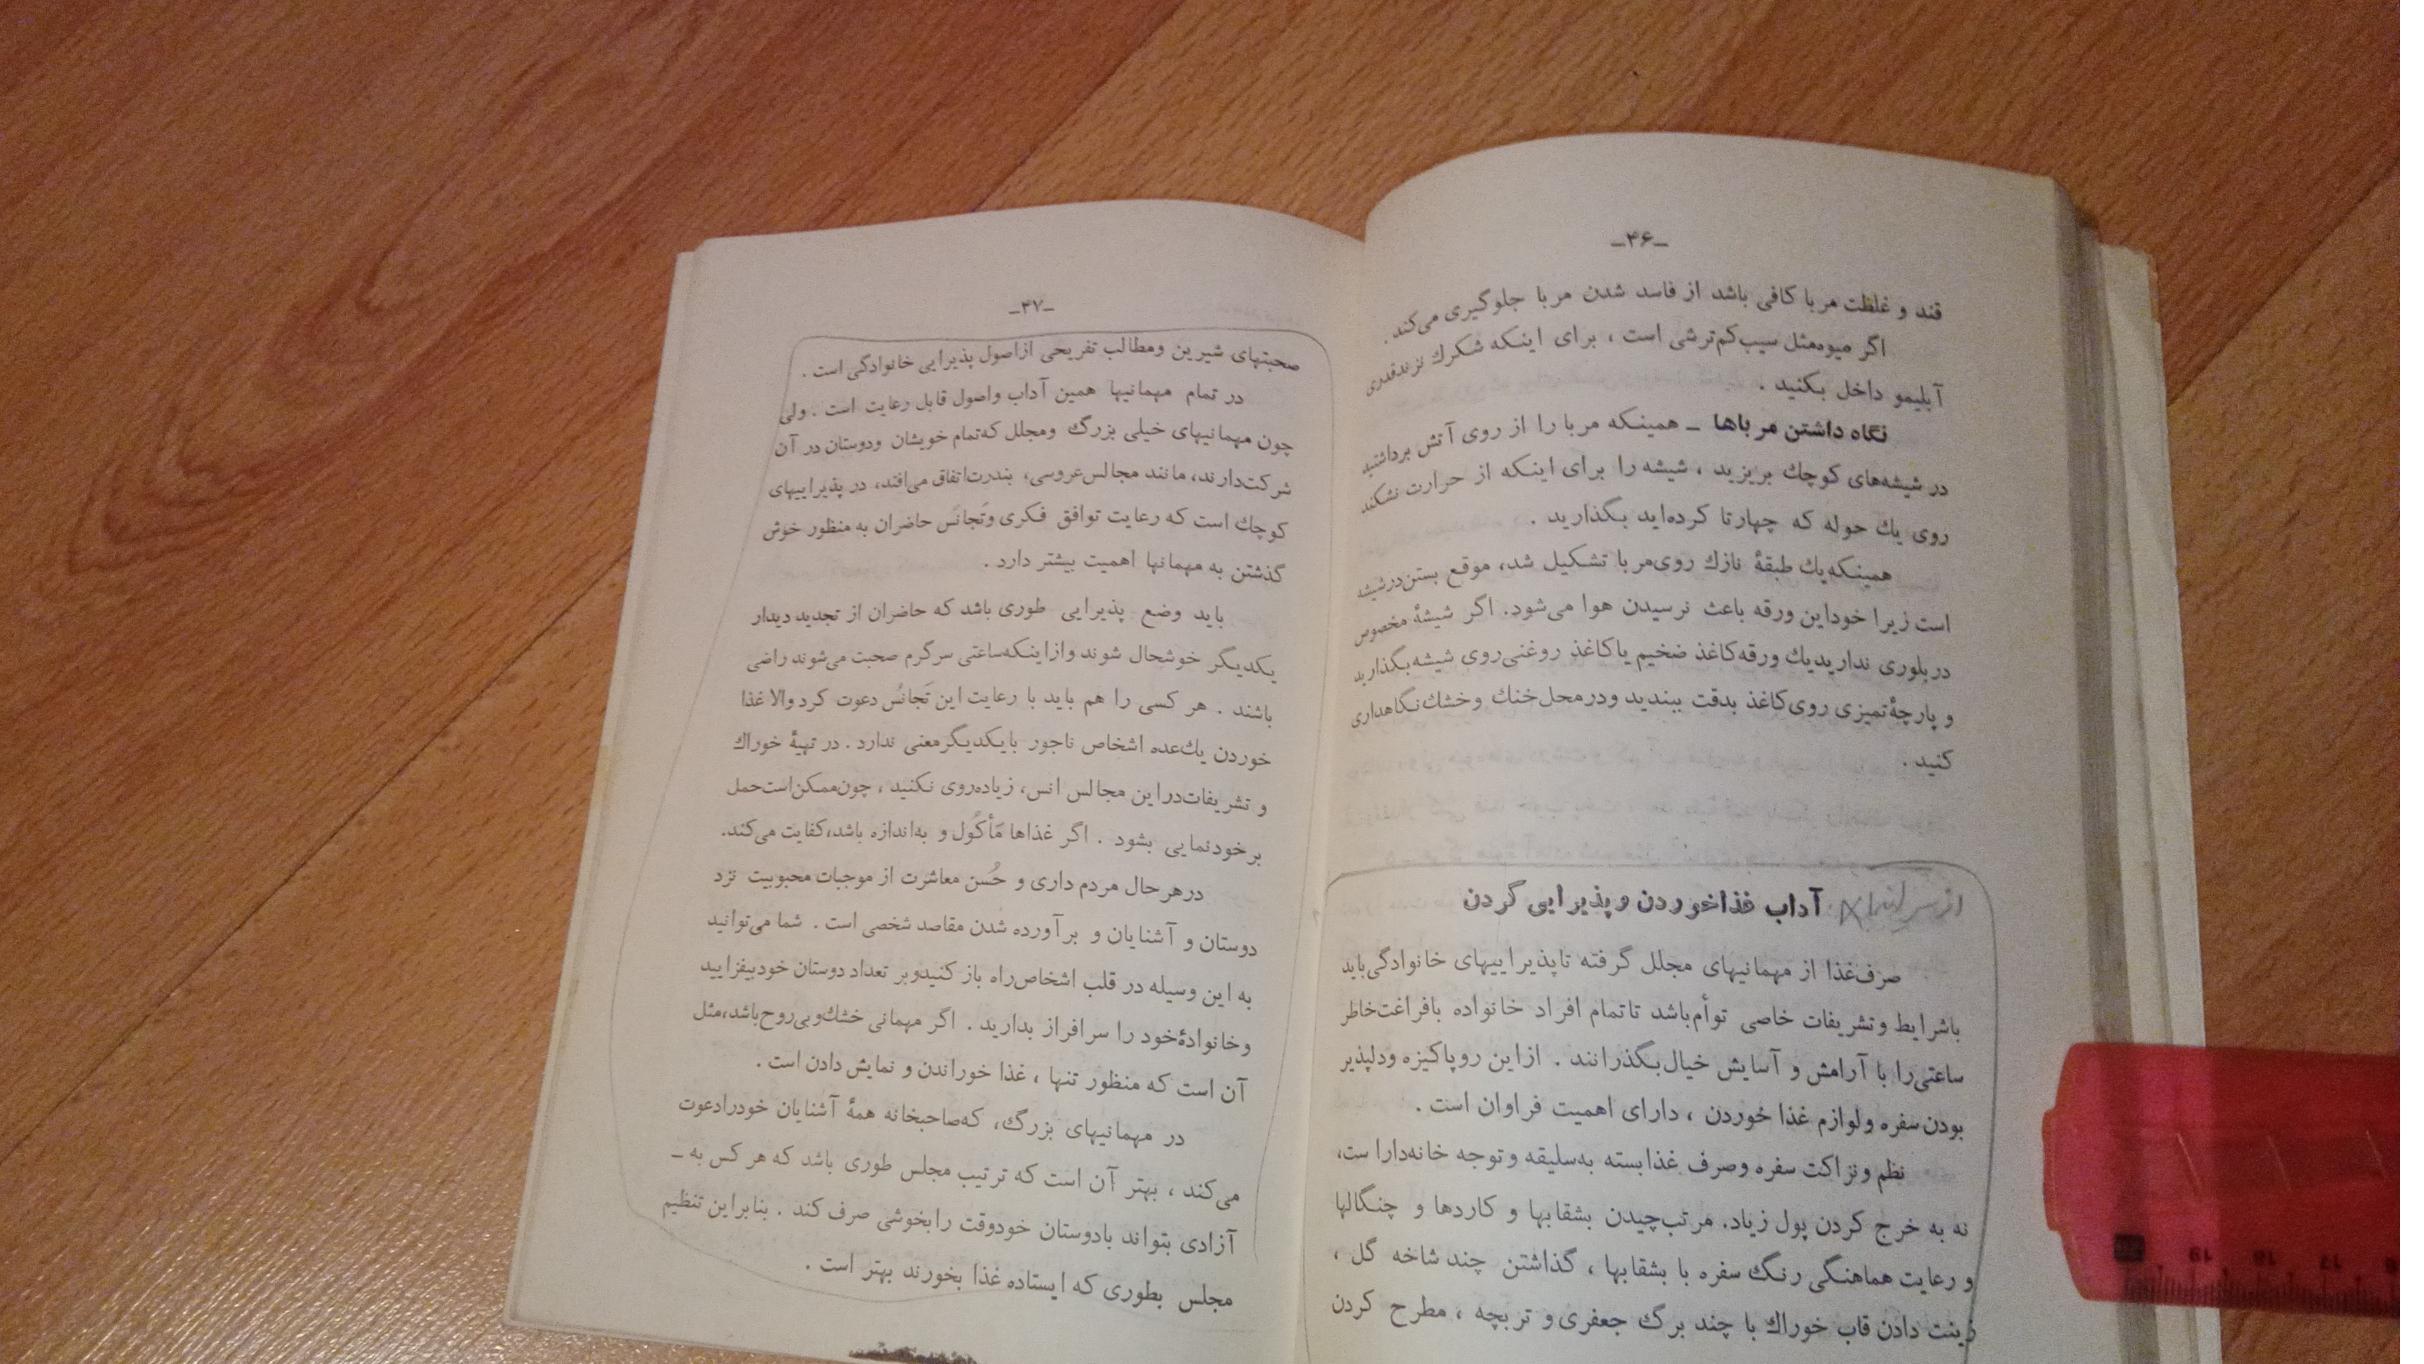 ـ۳۶ـ
قند و غلظت مربا کافی باشد از فاسد شدن مربا جلوگیری می‌کند .
اگر میوه‌مثل سیب‌کم‌ترشی است ، برای اینکه شکرك نزندقدری
آبلیمو داخل بکنید .
نگاه داشتن مرباها ـ همینکه مربا را از روی آتش برداشتید
در شیشه‌های کوچك بریزید ، شیشه را برای اینکه از حرارت نشکند
روی یك حوله که چهارتا کرده‌اید بگذارید .
همینکه‌یك طبقهٔ نازك روی‌مربا تشکیل شد، موقع بستن‌درشیشه
است زیرا خوداین ورقه باعث نرسیدن هوا می‌شود. اگر شیشهٔ مخصوص
دربلوری ندارید‌یك ورقه‌کاغذ ضخیم یا‌کاغذ روغنی‌روی شیشه‌بگذارید
و پارچهٔ‌تمیزی روی‌کاغذ بدقت ببندید ودرمحل‌خنك وخشك‌نگاهداری
کنید .
آداب غذاخوردن و پذیرایی کردن
صرف‌غذا از مهمانیهای مجلل گرفته تا‌پذیراییهای خانوادگی‌باید
باشرایط وتشریفات خاصی توأم‌باشد تا‌تمام افراد خانواده بافراغت‌خاطر
ساعتی‌را با آرامش و آسایش خیال‌بگذرانند . ازاین روپاکیزه ودلپذیر
بودن‌سفره ولوازم غذا خوردن ، دارای اهمیت فراوان است .
نظم ونزاکت سفره وصرف غذا‌بسته به‌سلیقه وتوجه خانه‌دارا ست،
نه به خرج کردن پول زیاد. مرتب‌چیدن بشقابها و کاردها و چنگالها
و رعایت هماهنگی رنگ سفره با بشقابها ، گذاشتن چند شاخه گل ،
زینت دادن قاب خوراك با چند برگ جعفری و تربچه ، مطرح کردن
ـ۳۷ـ
صحبتهای شیرین ومطالب تفریحی ازاصول پذیرایی خانوادگی است .
در تمام مهمانیها همین آداب واصول قابل رعایت است . ولی
چون مهمانیهای خیلی بزرگ ومجلل که‌تمام خویشان ودوستان در آن
شرکت‌دارند، مانند مجالس‌عروسی، بندرت‌اتفاق می‌افتد، در پذیراییهای
کوچك است که رعایت توافق فکری وتَجانُس حاضران به منظور خوش
گذشتن به مهمانها اهمیت بیشتر دارد .
باید وضع پذیرایی طوری باشد که حاضران از تجدید دیدار
یکدیگر خوشحال شوند وازاینکه‌ساعتی سرگرم صحبت می‌شوند راضی
باشند . هر کسی را هم باید با رعایت این تَجانُس دعوت کرد والا غذا
خوردن یك‌عده اشخاص ناجور بایکدیگرمعنی ندارد . در تهیهٔ خوراك
و تشریفات‌دراین مجالس انس، زیاده‌روی نکنید ، چون‌ممکن‌است‌حمل
بر‌خودنمایی بشود . اگر غذاها مَأکُول و به‌اندازه باشد،کفایت می‌کند.
درهرحال مردم داری و حُسن معاشرت از موجبات محبوبیت نزد
دوستان و آشنایان و برآورده شدن مقاصد شخصی است . شما می‌توانید
به این وسیله در قلب اشخاص‌راه باز کنیدوبر تعداد دوستان خودبیفزایید
وخانوادهٔ‌خود را سرافراز بدارید . اگر مهمانی خشك‌وبی‌روح‌باشد،مثل
آن است که منظور تنها ، غذا خوراندن و نمایش دادن است .
در مهمانیهای بزرگ، که‌صاحبخانه همهٔ آشنایان خودرادعوت
می‌کند ، بهتر آن است که ترتیب مجلس طوری باشد که هر کس به ـ
آزادی بتواند بادوستان خودوقت رابخوشی صرف کند . بنابراین تنظیم
مجلس بطوری که ایستاده غذا بخورند بهتر است .